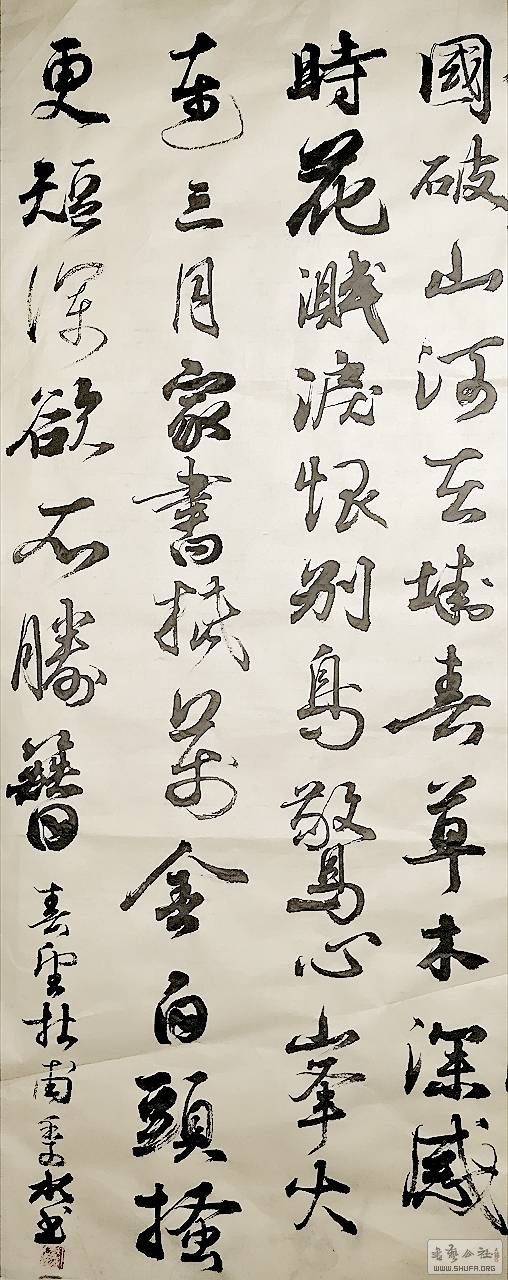 國破山河在城春草木深感
時花濺淚恨別鳥驚心峯火
連三月家書抵萬金白頭搔
更短渾欲不勝簪
春望杜甫 书
书艺公社
WWW.SHUFA.ORG